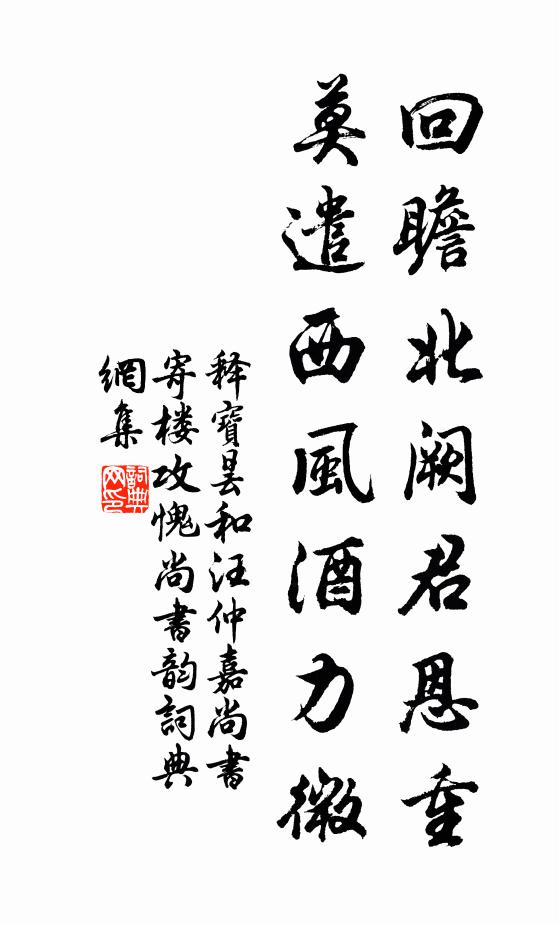 回瞻北阙君恩重
莫遣西風酒力微
释寶曇和汪仲嘉尚書
寄楼攻愧尚書韵詞典
網集
詞典
网印